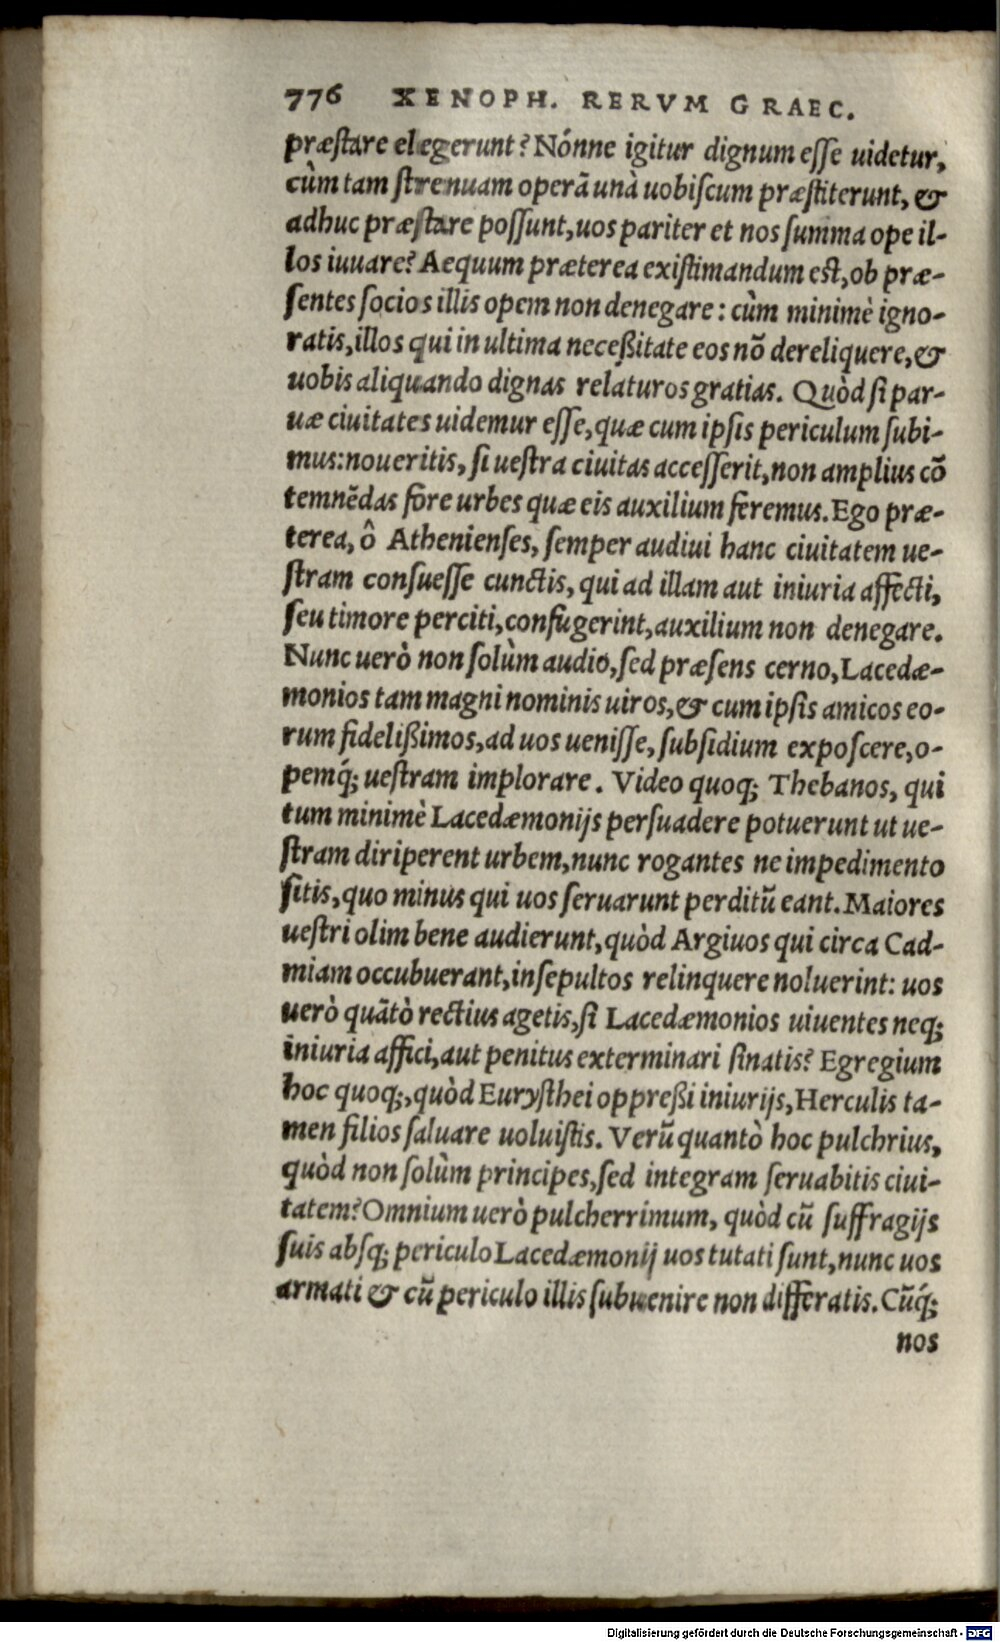 776 XENOPH. RERVM GRAEC.
præſtare elegerunt? Nónne igitur dignum eſſe uidetur,
cùm tam ſtrenuam operā unà uobiſcum præſtiterunt, &
adhuc præſtare poſſunt, uos pariter et nos ſumma ope il-
los iuuare? Aequum præterea exiſtimandum eſt, ob præ-
ſentes ſocios illis opem non denegare: cùm minimè igno-
ratis, illos qui in ultima neceßitate eos nō dereliquere, &
uobis aliquando dignas relaturos gratias. Quòd ſi par-
uæ ciuitates uidemur eſſe, quæ cum ipſis periculum ſubi-
mus: noueritis, ſi ueſtra ciuitas acceſſerit, non amplius cō
temnēdas fore urbes quæ eis auxilium feremus. Ego præ-
terea, ô Athenienſes, ſemper audiui hanc ciuitatem ue-
ſtram conſueſſe cunctis, qui ad illam aut iniuria affecti,
ſeu timore perciti, confugerint, auxilium non denegare.
Nunc uerò non ſolùm audio, ſed præſens cerno, Lacedæ-
monios tam magni nominis uiros, & cum ipſis amicos eo-
rum fidelißimos, ad uos ueniſſe, ſubſidium expoſcere, o-
pemq́; ueſtram implorare. Video quoq; Thebanos, qui
tum minimè Lacedæmonijs perſuadere potuerunt ut ue-
ſtram diriperent urbem, nunc rogantes ne impedimento
ſitis, quo minus qui uos ſeruarunt perditū eant. Maiores
ueſtri olim bene audierunt, quòd Argiuos qui circa Cad-
miam occubuerant, inſepultos relinquere noluerint: uos
uerò quātò rectius agetis, ſi Lacedæmonios uiuentes neq;
iniuria affici, aut penitus exterminari ſinatis? Egregium
hoc quoq;, quòd Euryſthei oppreßi iniurijs, Herculis ta-
men filios ſaluare uoluiſtis. Verū quantò hoc pulchrius,
quòd non ſolùm principes, ſed integram ſeruabitis ciui-
tatem? Omnium uerò pulcherrimum, quòd cū ſuffragijs
ſuis abſq; periculo Lacedæmonij uos tutati ſunt, nunc uos
armati & cū periculo illis ſubuenire non differatis. Cūq́;
nos
Digitalisierung gefördert durch die Deutsche Forschungsgemeinschaft - DFG